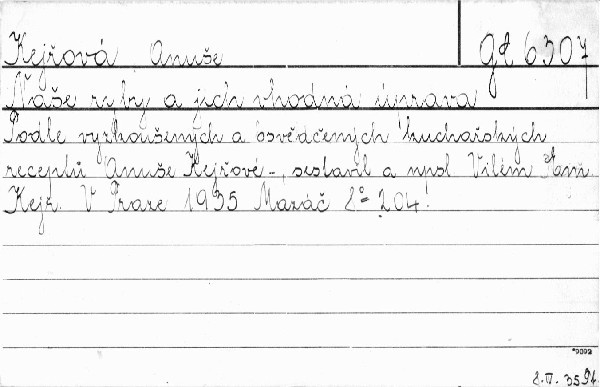 Kejřová Anuše Gd 6307
Naše ryby a jich vhodná úprava
Podle vyzkoušených a osvědčených kuchařských
receptů Anuše Kejřové-, sestavil a naps. Vilém Ant.
Kejř. V Praze 1935 Mazáč 8° 204!
*9092